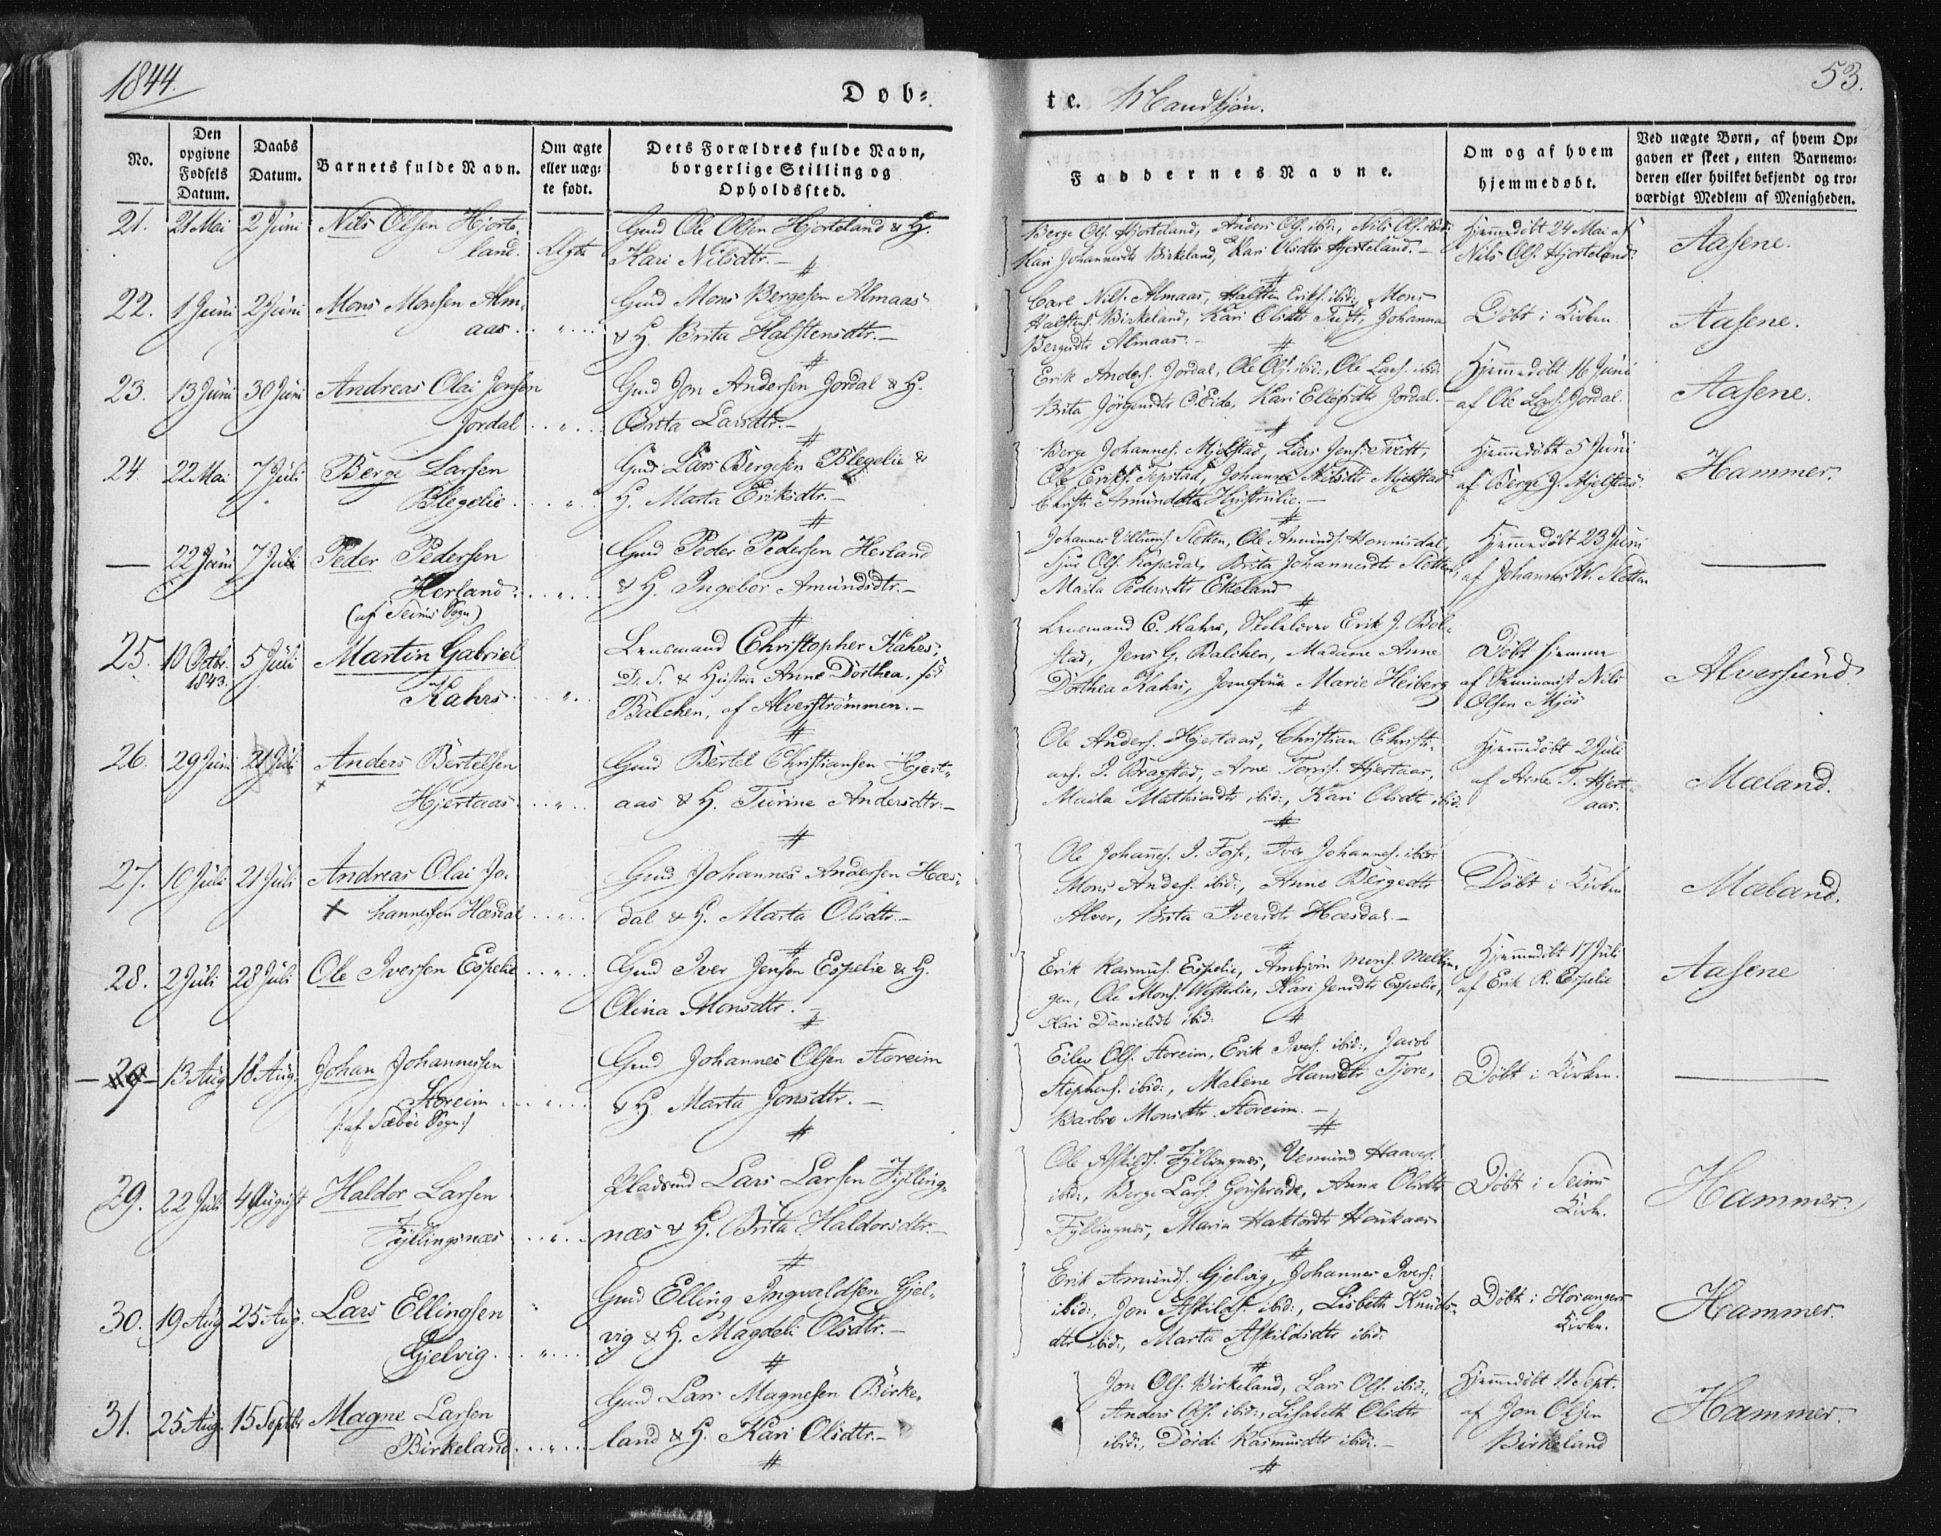 1844.
Døb=
te. Mandkjøn.
53.
No.
Den opgivne Fødsels Datum.
Daabs Datum.
Barnets fulde Navn.
Om ægte eller uæg= te født.
Dets Forældres fulde Navn, borgerlige Stilling og Opholdssted.
Faddernes Navne.
Om og af hvem hjemmedøbt.
Ved uægte Børn, af hvem Op= gaven er skeet, enten Barnemo= deren eller hvilket bekjendt og tro= værdigt Medlem af Menigheden.
21. 21 Mai 2 Juni Nils Olsen Hjorte= Gmd Ole Olsen Hjorteland & H.
land. Ægte Kari Nilsdtr.
Berge Ols. Hjorteland, Anders Ols. ibid:, Nils Ols. ibid:
Kari Johannesdtr Birkeland, Kari Olsdtr Hjorteland.
Hjemmedøbt 24 Mai af
Nils Ols. Hjorteland.
Aasene.
22. 1 Juni 2 Juni Mons Monsen Alm= Gmd Mons Bergesen Almaas
aas & H. Brita Halstensdtr.
Nils. Almaas, Halsten Eriks. ibid:, Mons
Halstens. Birkeland, Kari Olsdtr Johanna
Bergesdtr Almaas.
Døbt i Kirken
Aasene.
23. 13 Juni 30 Juni Andreas Olai Jonsen Gmd Jon Andersen Jordal & H.
Jordal Brita Larsdtr.
Erik Anders. Jordal, Ole Ols. ibid:, Ole Lars. ibid
Brita Jørgensdtr Eide, Kari Ellefsdtr Jordal.
Hjemmedøbt 16 Juni
af Ole Lars. Jordal.
Aasene.
24. 22 Mai 7 Juli Berge Larsen Gmd Lars Bergesen Blegelie &
Blegelie H. Marta Eriksdtr.
Berge Johannes. Mjelstad, Lars Jens. Tveit,
Ole Eriks. Tepstad, Johanna Nilsdtr Mjelstad
Amundsdtr
Hjemmedøbt 5 Juni
af Berge J. Mjelstad.
Hammer.
— 22 Juni 7 Juli Peder Pedersen Gmd Peder Pedersen Herland
Herland & H. Ingebor Amundsdtr.
(af Seims Sogn)
Johannes Villums. Sletten, Ole Amunds. Honnisdal,
Sjur Ols. Brita Johannesdtr Sletten,
Maila Pedersdtr Ekeland
Hjemmedøbt 23 Juni
af Johannes W. Sletten
25. 10 Octbr. 5 Juli Martin Gabriel Lensmand Christopher Kahrs,
1843. Kahrs & Hustru Anne Dorthea, fød
Balchen, af Alverstrømmen.
Lensmand C. Kahrs, Skolelærer Erik J. Bol=
stad, Jens G. Balchen, Madame Anne
Dorthea Kahrs, Marie Heiberg
Døbt hjemme
af Seminarist Nils
Olsen Mjøs
Alversund.
26. 29 Juni 21 Juli Anders Bertelsen Gmd Bertel Christiansen Hjert=
Hjertaas aas & H. Turine Andersdtr.
Ole Anders. Hjertaas, Christian Christi=
ans. I. Bragstad, Arne Hjertaas,
Maila Mathiasdtr ibid:, Kari Olsdtr ibid:
Hjemmedøbt 2 Juli
af Arne T. Hjert=
aas.
Mæland.
27. 10 Juli 21 Juli Andreas Olai Jo= Gmd Johannes Andersen Hæs=
hannessen Hæsdal dal & H. Marta Olsdtr.
Ole Johannes. I. Foss, Iver Johannes. ibid:
Mons Anders. ibid:, Anne Bergesdtr
Alver, Brita Iversdtr Hæsdal.
Døbt i Kirken
Mæland.
28. 2 Juli 28 Juli Ole Iversen Espelie Gmd Iver Jensen Espelie & H.
Olina Monsdtr.
Erik Rasmus. Espelie, Ambjørn Mons. Mellin=
gen, Ole Mons. Westerlie, Kari Jensdtr Espelie,
Kari Danielsdtr ibid:
Hjemmedøbt 17 Juli
af Erik R. Espelie
Aasene
— 29 13 Aug 18 Aug. Johan Johannessen Gmd Johannes Olsen Storeim
Storeim & H Marta Jonsdtr.
/:af Sæbøe Sogn:/
Eilev Ols. Storeim, Erik Ivers. ibid:, Jacob
Stephens. ibid:, Malene Hansdtr Tjore,
Barbro Monsdtr. Storeim.
Døbt i Kirken.
29. 22 Juli 4 August Haldor Larsen Pladsmd Lars Larsen Fylling=
Fyllingsnæs næs & H. Brita Haldorsdtr.
Ole Askilds. Fyllingnæs, Vemund Haavers.
ibid:, Berge Lars. Anna Olsdtr
Fyllingnes, Maria
Døbt i Seims
Kirke.
Hammer.
30. 19 Aug 25 Aug. Lars Ellingsen Gmd Elling Ingvaldsen Gjel=
Gjelvig. vig & H. Magdeli Olsdtr.
Erik Amunds. Gjelvig, Johannes Ivers:
ibid:, Jon Askilds. ibid:, Lisbeth Knuds=
dtr ibid:, Marta Askildsdtr ibid:
Døbt i Hosanger
Kirke.
Hammer.
31. 25 Aug. 15 Septbr Magne Larsen Gmd Lars Magnesen Birke=
Birkeland land & H. Kari Olsdtr.
Jon Ols. Birkeland, Lars Ols. ibid:,
Anders Ols. ibid:, Lisabeth Olsdtr
ibid:, Dordi Rasmusdtr ibid:.
Hjemmedøbt 11 Sept.
af Jon Olsen
Birkeland
Hammer.